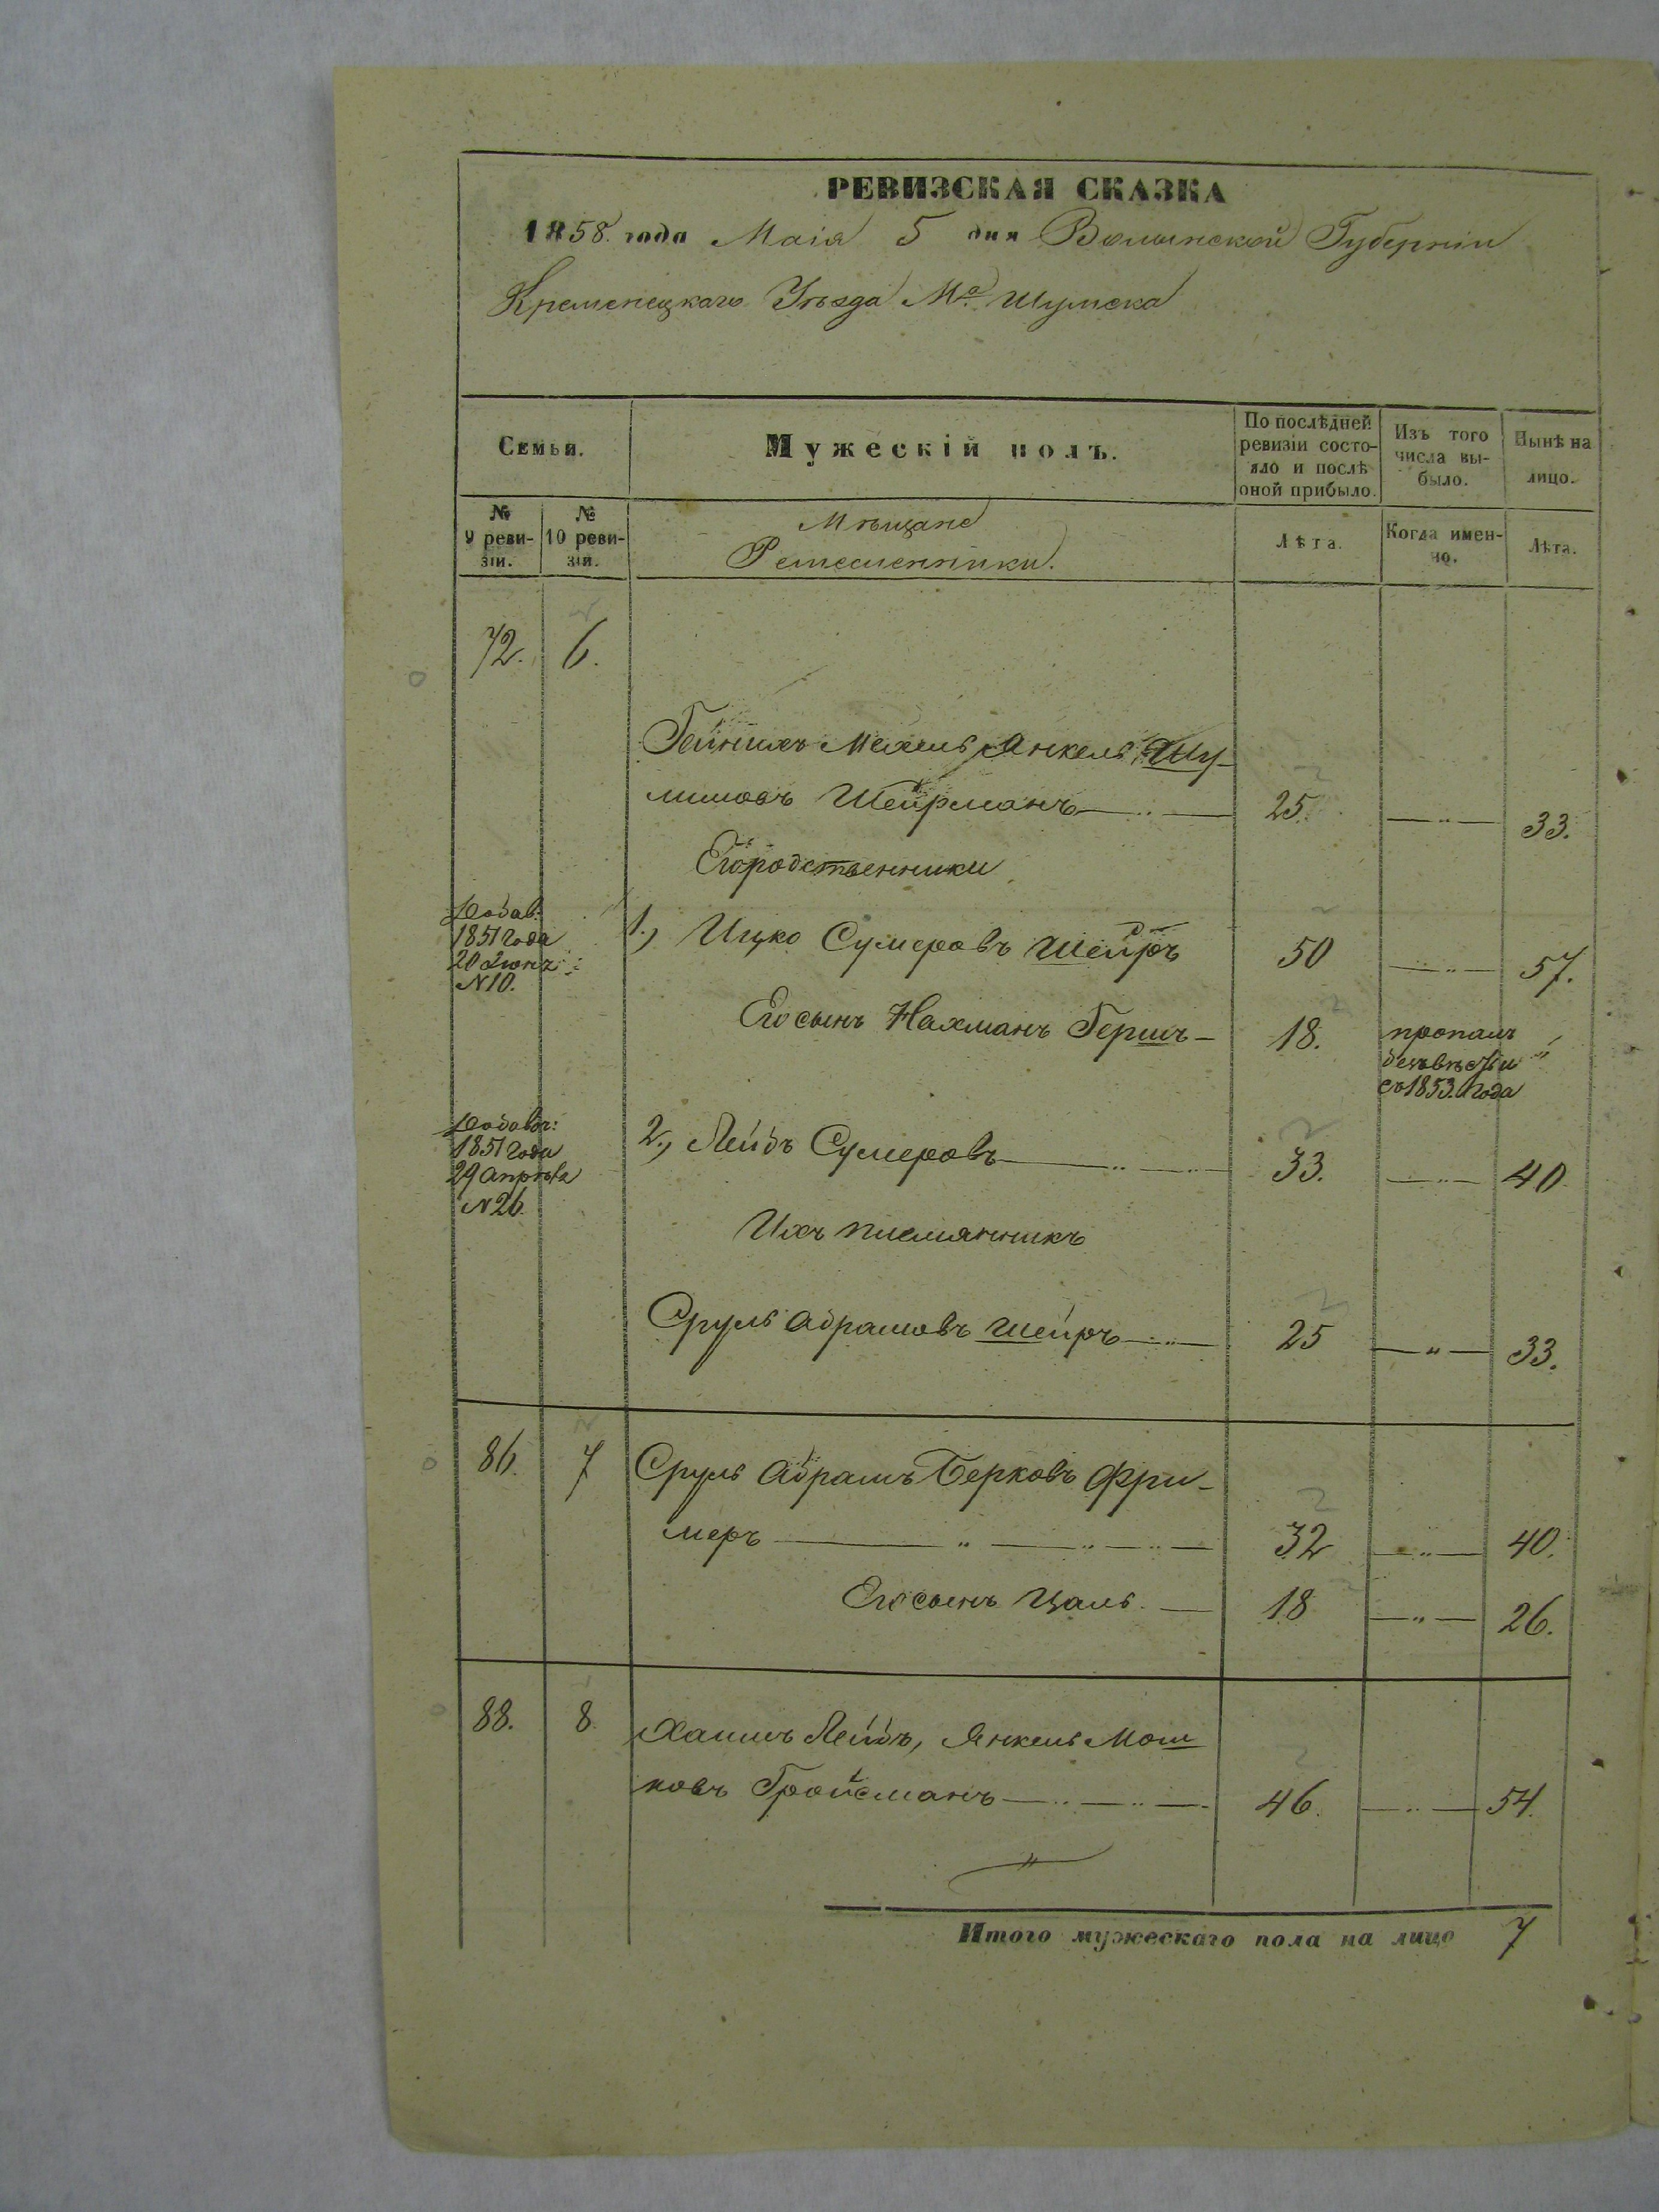 РЕВИЗСКАЯ СКАЗКА
1858. года Маія 5 дня Волынской Губерніи
Кременецкаго Уѣзда Мᵃ. Шумска
Семьи.
Мужескій полъ.
По послѣдней ревизіи состояло и послѣ оной прибыло.
Изъ того числа выбыло.
Нынѣ на лицо.
№ 9 ревизіи.
№ 10 ревизіи.
Мѣщане
Ремесленники.
Лѣта.
Когда именно.
Лѣта.
72. 6.
Гейнихъ Мехель Янкель Шу-
лимовъ Шейрманъ 25. — " — 33.
Его родственники
Добав:
1851 года
20 Іюня
N 10.
1., Ицко Сумеровъ Шейръ 50 — " — 57.
Его сынъ Нахманъ Гершъ — 18. пропалъ
безъвѣсти "
съ 1853. года
Добавл:
1851 года
29 Апрѣля
N 26.
2., Лейбъ Сумеровъ 33. — " — 40
Ихъ племянникъ
Сруль Абрамовъ Шейръ 25 — " — 33.
86. 7 Сруль Абрамъ Берковъ Фри-
меръ — " — " — " — 32 — " — 40.
Его сынъ Цаль. — 18 — " — 26.
88. 8. Хаимъ Лейбъ, Янкель Мош
ковъ Гройсманъ — " — " — 46. — " — 54.
Итого мужескаго пола на лицо 7